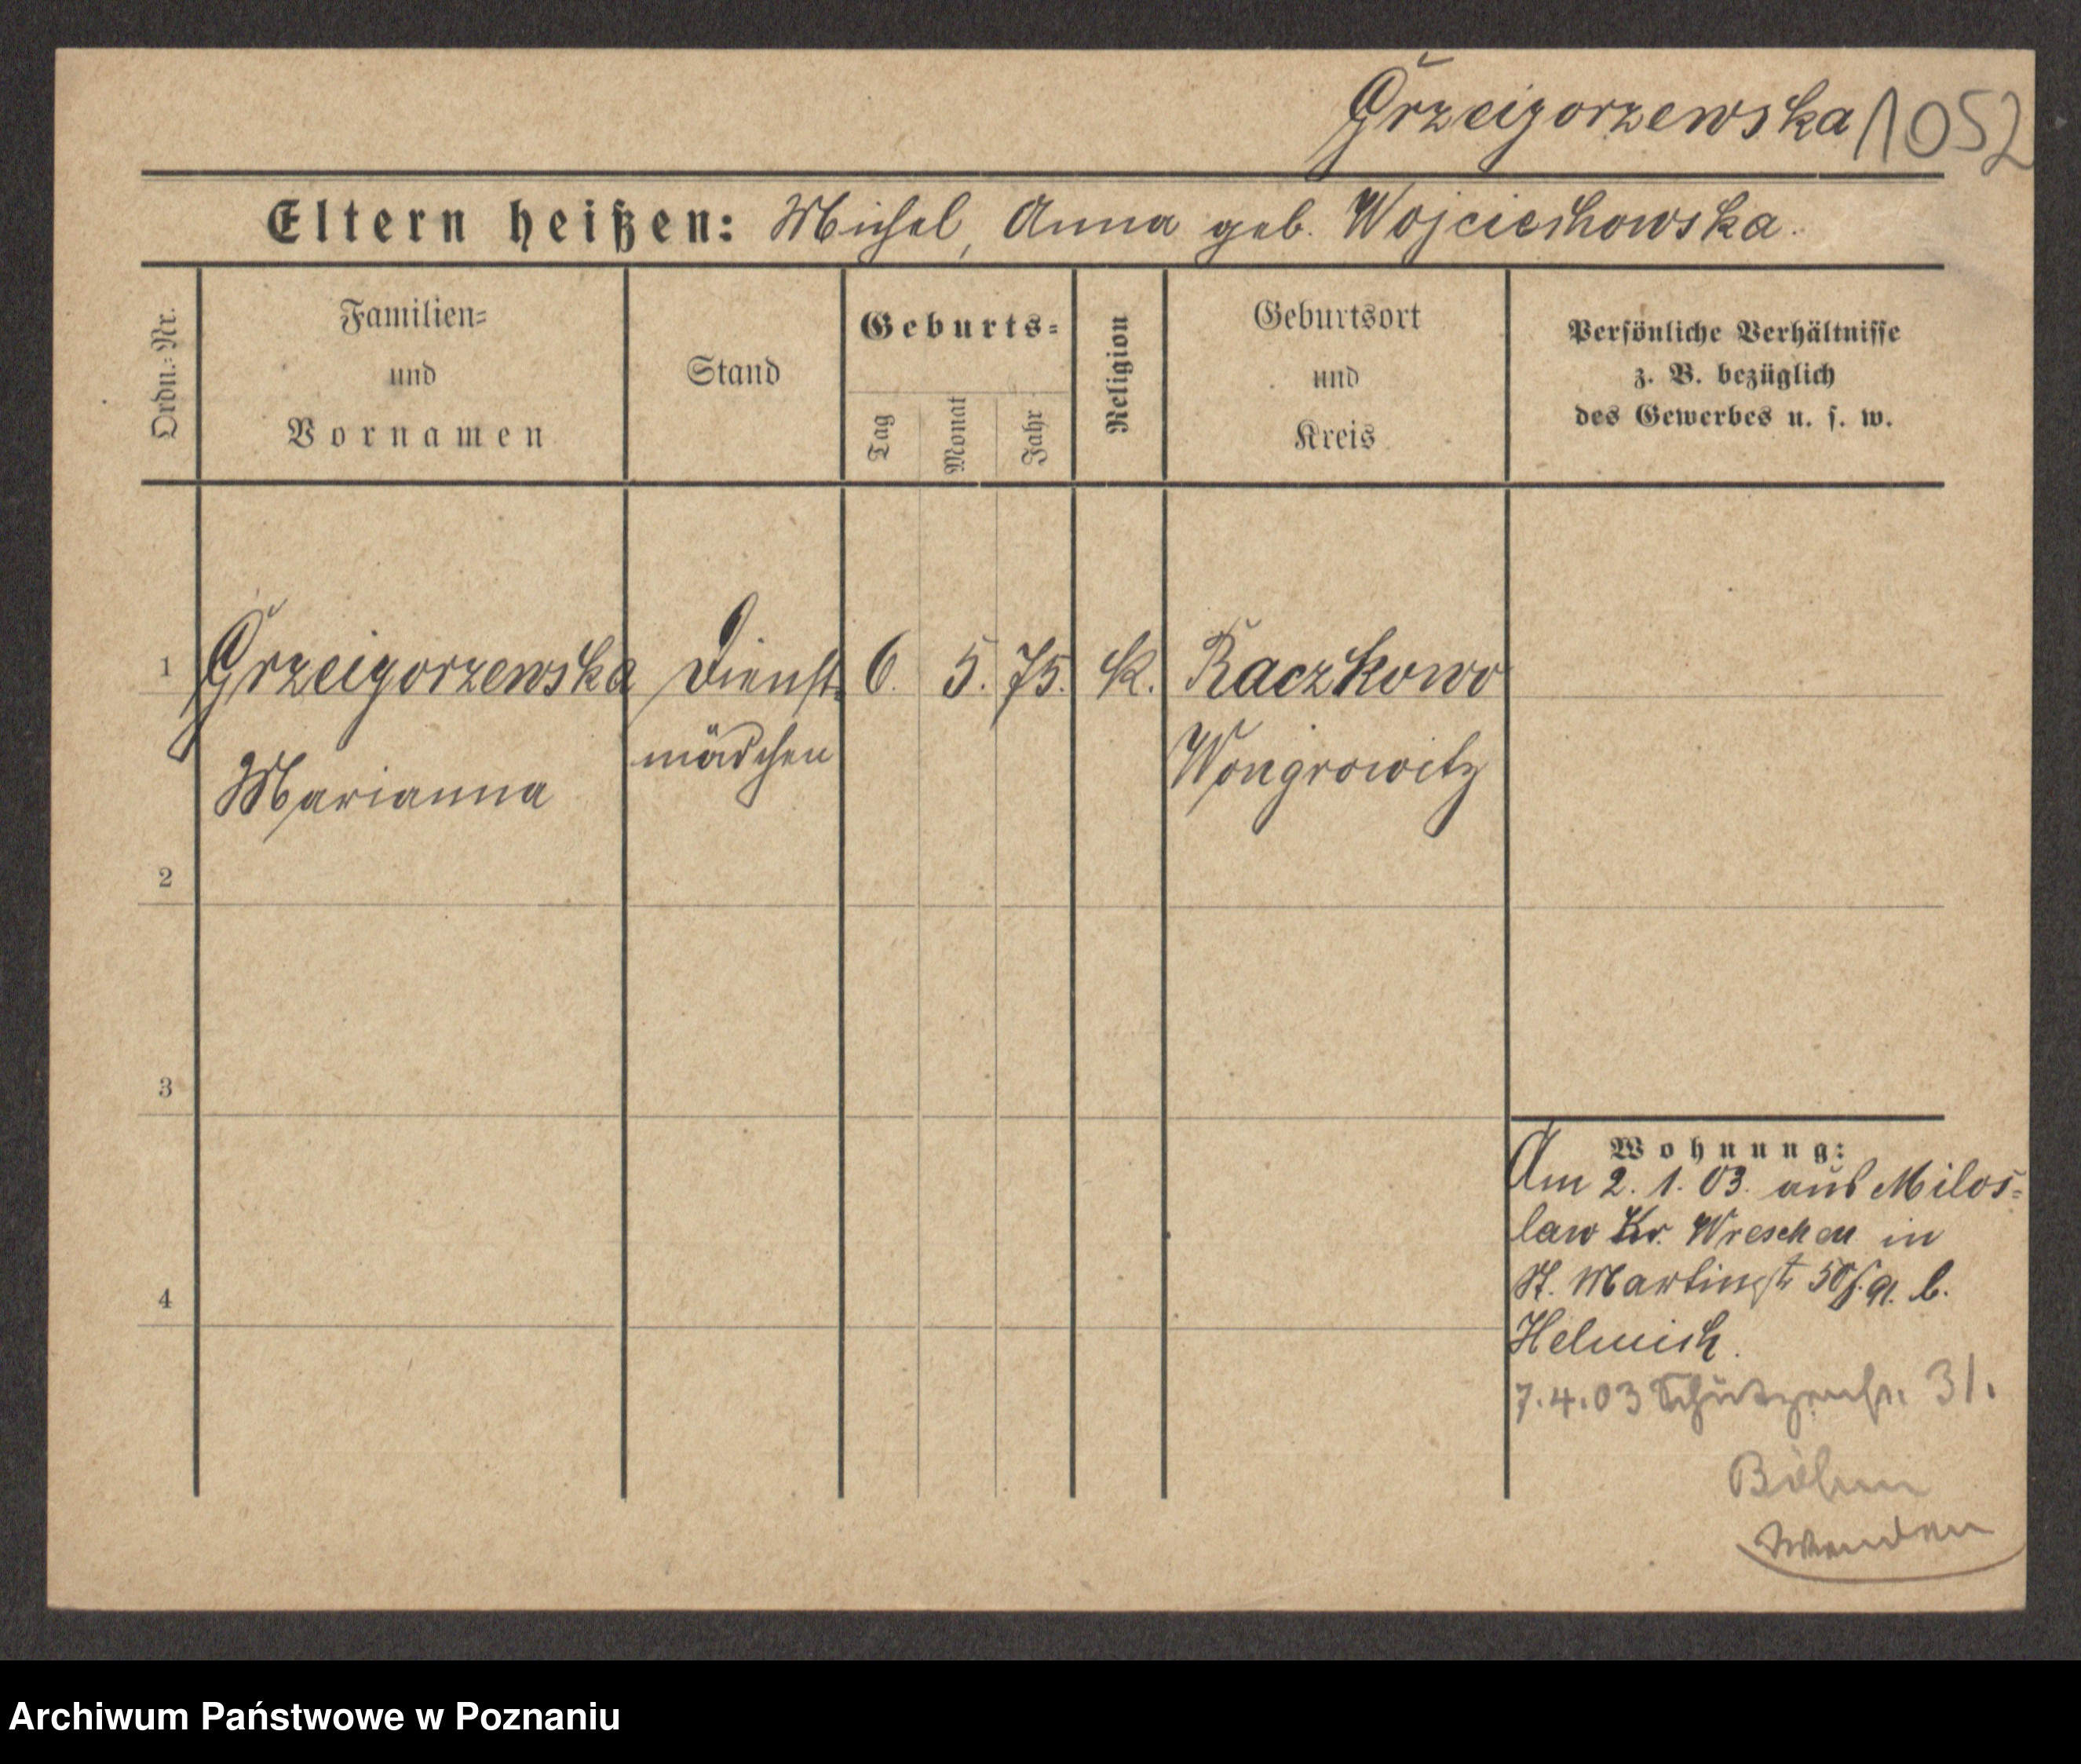 Grzeigorzewska 1052
Eltern heißen: Michel, Anna geb. Wojciechowska.
Ordn.-Nr.
Familien-
und
Vornamen
Stand
Geburts-
Tag
Monat
Jahr
Religion
Geburtsort
und
Kreis
Persönliche Verhältnisse
z. B. bezüglich
des Gewerbes u. s. w.
1 Grzeigorzewska Dienst- 6. 5. 75. K. Raczkowo
Marianna mädchen Wongrowitz
2
3
4
Wohnung:
Am 2. 1. 03. aus Milos-
law Kr. Wreschen in
St. Martinstr 50/51. b.
7.4.03 Schützenstr. 31.
Böhm
Wenden
Archiwum Państwowe w Poznaniu